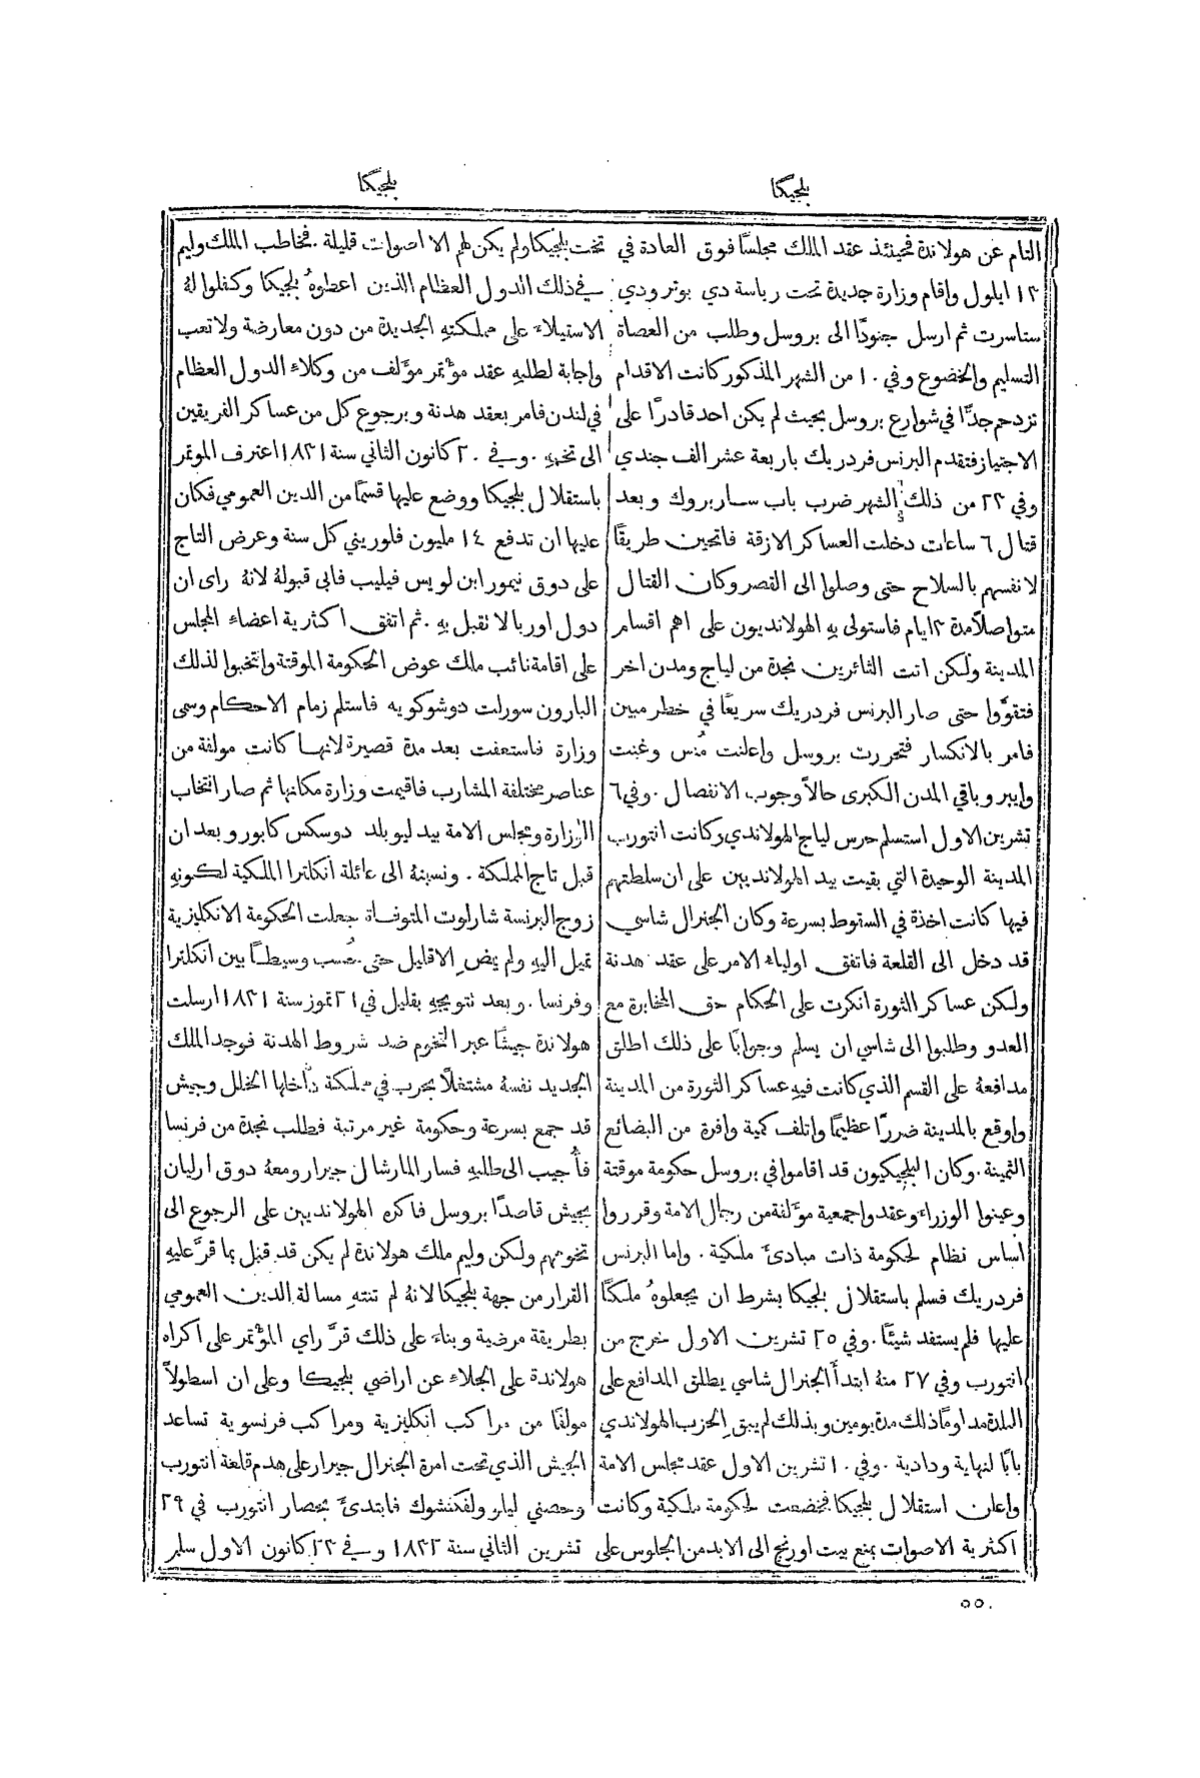 بلجيكا
بلجيكا
التام عن هولاندة فحينئذ عقد الملك مجلسًا فوق العادة في
١٣ ايلول واقام وزارة جديدة تحت رياسة دي بوترودي
ستاسرت ثم ارسل جنودًا الى بروسل وطلب من العصاة
التسليم والخضوع وفي ١٠ من الشهر المذكور كانت الاقدام
تزدحم جدًّا في شوارع بروسل بحيث لم يكن احد قادرًا على
الاجتياز فتقدم البرنس فردريك باربعة عشر الف جندي
وفي ٢٣ من ذلك الشهر ضرب باب ساربروك وبعد
قتال ٦ ساعات دخلت العساكر الازقة فاتحين طريقًا
لانفسهم بالسلاح حتى وصلوا الى القصر وكان القتال
متواصلًا مدة ٣ ايام فاستولى به الهولانديون على اهم اقسام
المدينة ولكن اتت الثائرين نجدة من لياج ومدن اخر
فتقوَّوا حتى صار البرنس فردريك سريعًا في خطر مبين
فامر بالانكسار فتحررت بروسل واعلنت مُنس وغنت
وايبر وباقي المدن الكبرى حالًا وجوب الانفصال . وفي ٦
تشرين الاول استسلم حرس لياج الهولاندي وكانت انتورب
المدينة الوحيدة التي بقيت بيد الهولانديين على ان سلطتهم
فيها كانت اخذة في السقوط بسرعة وكان الجنرال شاسي
قد دخل الى القلعة فاتفق اولياء الامر على عقد هدنة
ولكن عساكر الثورة انكرت على الحكام حق المخابرة مع
العدو وطلبوا الى شاسي ان يسلم وجوابًا على ذلك اطلق
مدافعهُ على القسم الذي كانت فيهِ عساكر الثورة من المدينة
واوقع بالمدينة ضررًا عظيمًا واتلف كمية وافرة من البضائع
الثمينة . وكان البلجيكيون قد اقاموا في بروسل حكومة موقتة
وعينوا الوزراء وعقدوا جمعية مؤلفة من رجال الامة وقرروا
اساس نظام لحكومة ذات مبادئ ملكية . واما البرنس
فردريك فسلم باستقلال بلجيكا بشرط ان يجعلوهُ ملكًا
عليها فلم يستفد شيئًا . وفي ٢٥ تشرين الاول خرج من
انتورب وفي ٢٧ منهُ ابتدأ الجنرال شاسي يطلق المدافع على
البلدة مداومًا ذلك مدة يومين وبذلك لم يبقِ الحزب الهولاندي
بابًا لنهاية ودادية . وفي ١٠ تشرين الاول عقد مجلس الامة
واعلن استقلال بلجيكا فخضعت لحكومة ملكية وكانت
اكثرية الاصوات بمنع بيت اورنج الى الابد من الجلوس على
تخت بلجيكا ولم يكن لهم الا اصوات قليلة . فخاطب الملك وليم
في ذلك الدول العظام الذين اعطوهُ بلجيكا وكفلوا لهُ
الاستيلاء على مملكتهِ الجديدة من دون معارضة ولا تعب
واجابة لطلبهِ عقد مؤتمر مؤلف من وكلاء الدول العظام
في لندن فامر بعقد هدنة وبرجوع كل من عساكر الفريقين
الى تخمهِ . وفي ٢٠ كانون الثاني سنة ١٨٣١ اعترف الموتمر
باستقلال بلجيكا ووضع عليها قسمًا من الدين العمومي فكان
عليها ان تدفع ١٤ مليون فلوريني كل سنة وعرض التاج
على دوق نيمور ابن لويس فيليب فابى قبولهُ لانهُ راى ان
دول اوربا لا تقبل بهِ . ثم اتفق اكثرية اعضاء المجلس
على اقامة نائب ملك عوض الحكومة الموقتة وانتخبوا لذلك
البارون سورلت دوشوكويه فاستلم زمام الاحكام وسمى
وزارة فاستعفت بعد مدة قصيرة لانها كانت مولفة من
عناصر مختلفة المشارب فاقيمت وزارة مكانها ثم صار انتخاب
الوزارة ومجلس الامة بيد ليوبلد دوسكس كابور وبعد ان
قبل تاج المملكة . ونسبتهُ الى عائلة انكلترا الملكية لكونهِ
زوج البرنسة شارلوت المتوفاة جعلت الحكومة الانكليزية
تميل اليهِ ولم يمضِ الا قليل حتى حُسب وسيطًا بين انكلترا
وفرنسا . وبعد تتويجهِ بقليل في ٢١ تموز سنة ١٨٣١ ارسلت
هولاندة جيشًا عبر التخوم ضد شروط الهدنة فوجد الملك
الجديد نفسهُ مشتغلًا بحرب في مملكة داخلها الخلل وجيش
قد جمع بسرعة وحكومة غير مرتبة فطلب نجدة من فرنسا
فأجيب الى طلبهِ فسار المارشال جيرار ومعهُ دوق ارليان
بجيش قاصدًا بروسل فاكره الهولانديين على الرجوع الى
تخومهم ولكن وليم ملك هولاندة لم يكن قد قبل بما قرَّ عليهِ
القرار من جهة بلجيكا لانهُ لم تنتهِ مسالة الدين العمومي
بطريقة مرضية وبناء على ذلك قرَّ راي المؤتمر على اكراه
هولاندة على الجلاء عن اراضي بلجيكا وعلى ان اسطولًا
مولفًا من مراكب انكليزية ومراكب فرنسوية تساعد
الجيش الذي تحت امرة الجنرال جيرار على هدم قلعة انتورب
وحصني ليلو ولفكنشوك فابتدئ بحصار انتورب في ٢٩
تشرين الثاني سنة ١٨٣٢ وفي ٢٣ كانون الاول سلم
٥٥٠